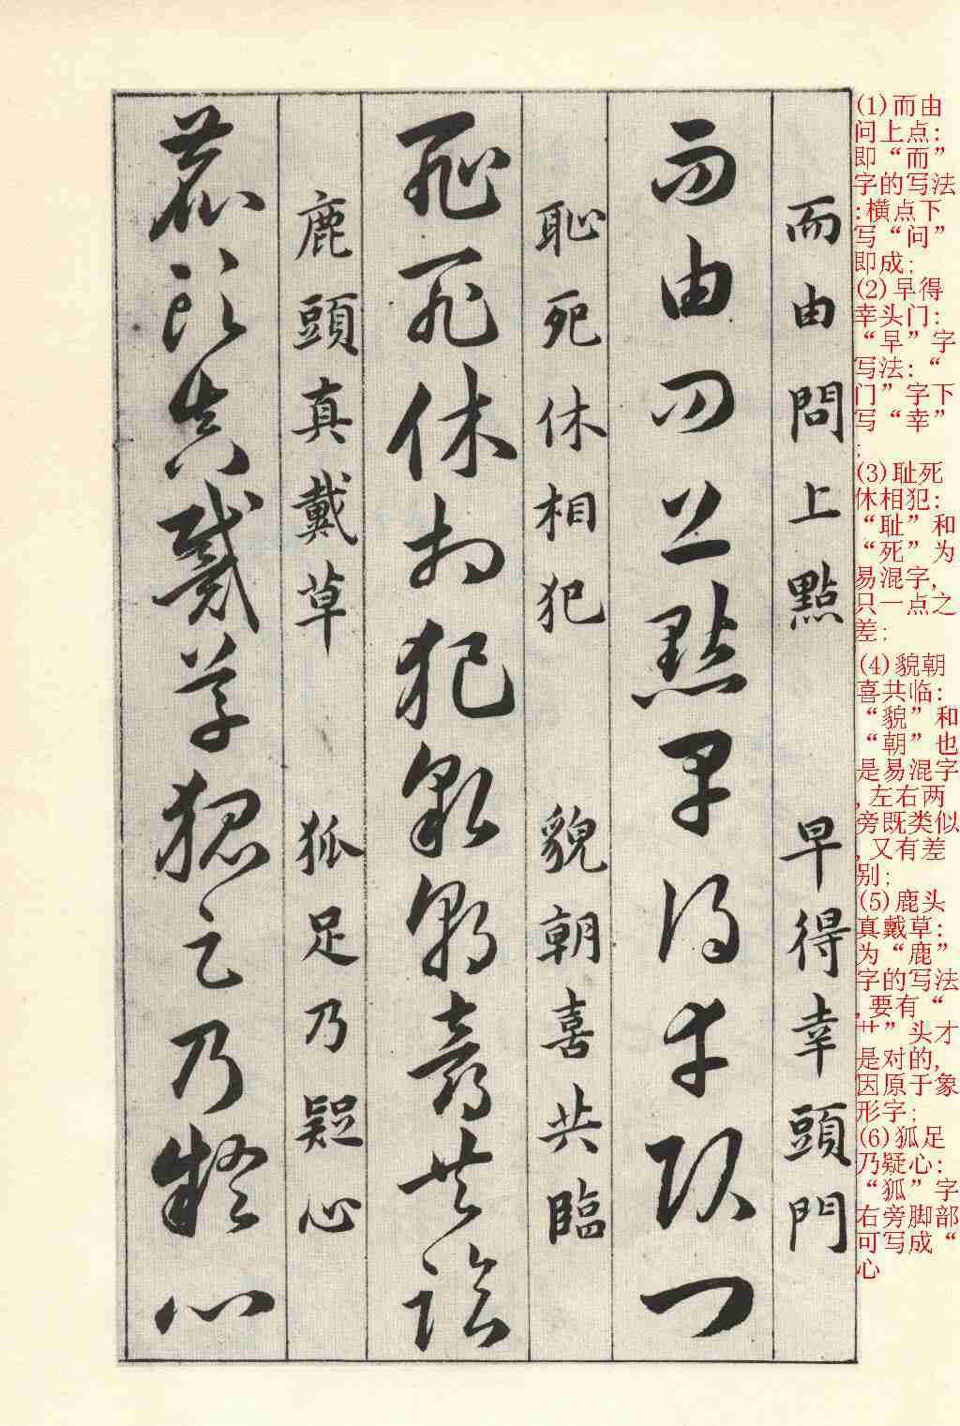 (1)而由
问上点:
即“而”
字的写法
:横点下
写“问”
即成;
(2)早得
幸头门:
“早”字
写法:“
门”字下
写“幸”
;
(3)耻死
休相犯:
“耻”和
“死”为
易混字,
只一点之
差;
(4)貌朝
喜共临:
“貌”和
“朝”也
是易混字
,左右两
旁既类似
,又有差
别;
(5)鹿头
真戴草:
为“鹿”
字的写法
,要有“
艹”头才
是对的,
因原于象
形字;
(6)狐足
乃疑心:
“狐”字
右旁脚部
可写成“
心
而由問上點 早得幸頭門
而由问上點早得幸頭門
恥死休相犯 貌朝喜共臨
恥死休相犯貌朝喜共臨
鹿頭真戴草 狐足乃疑心
鹿頭真戴草狐足乃疑心